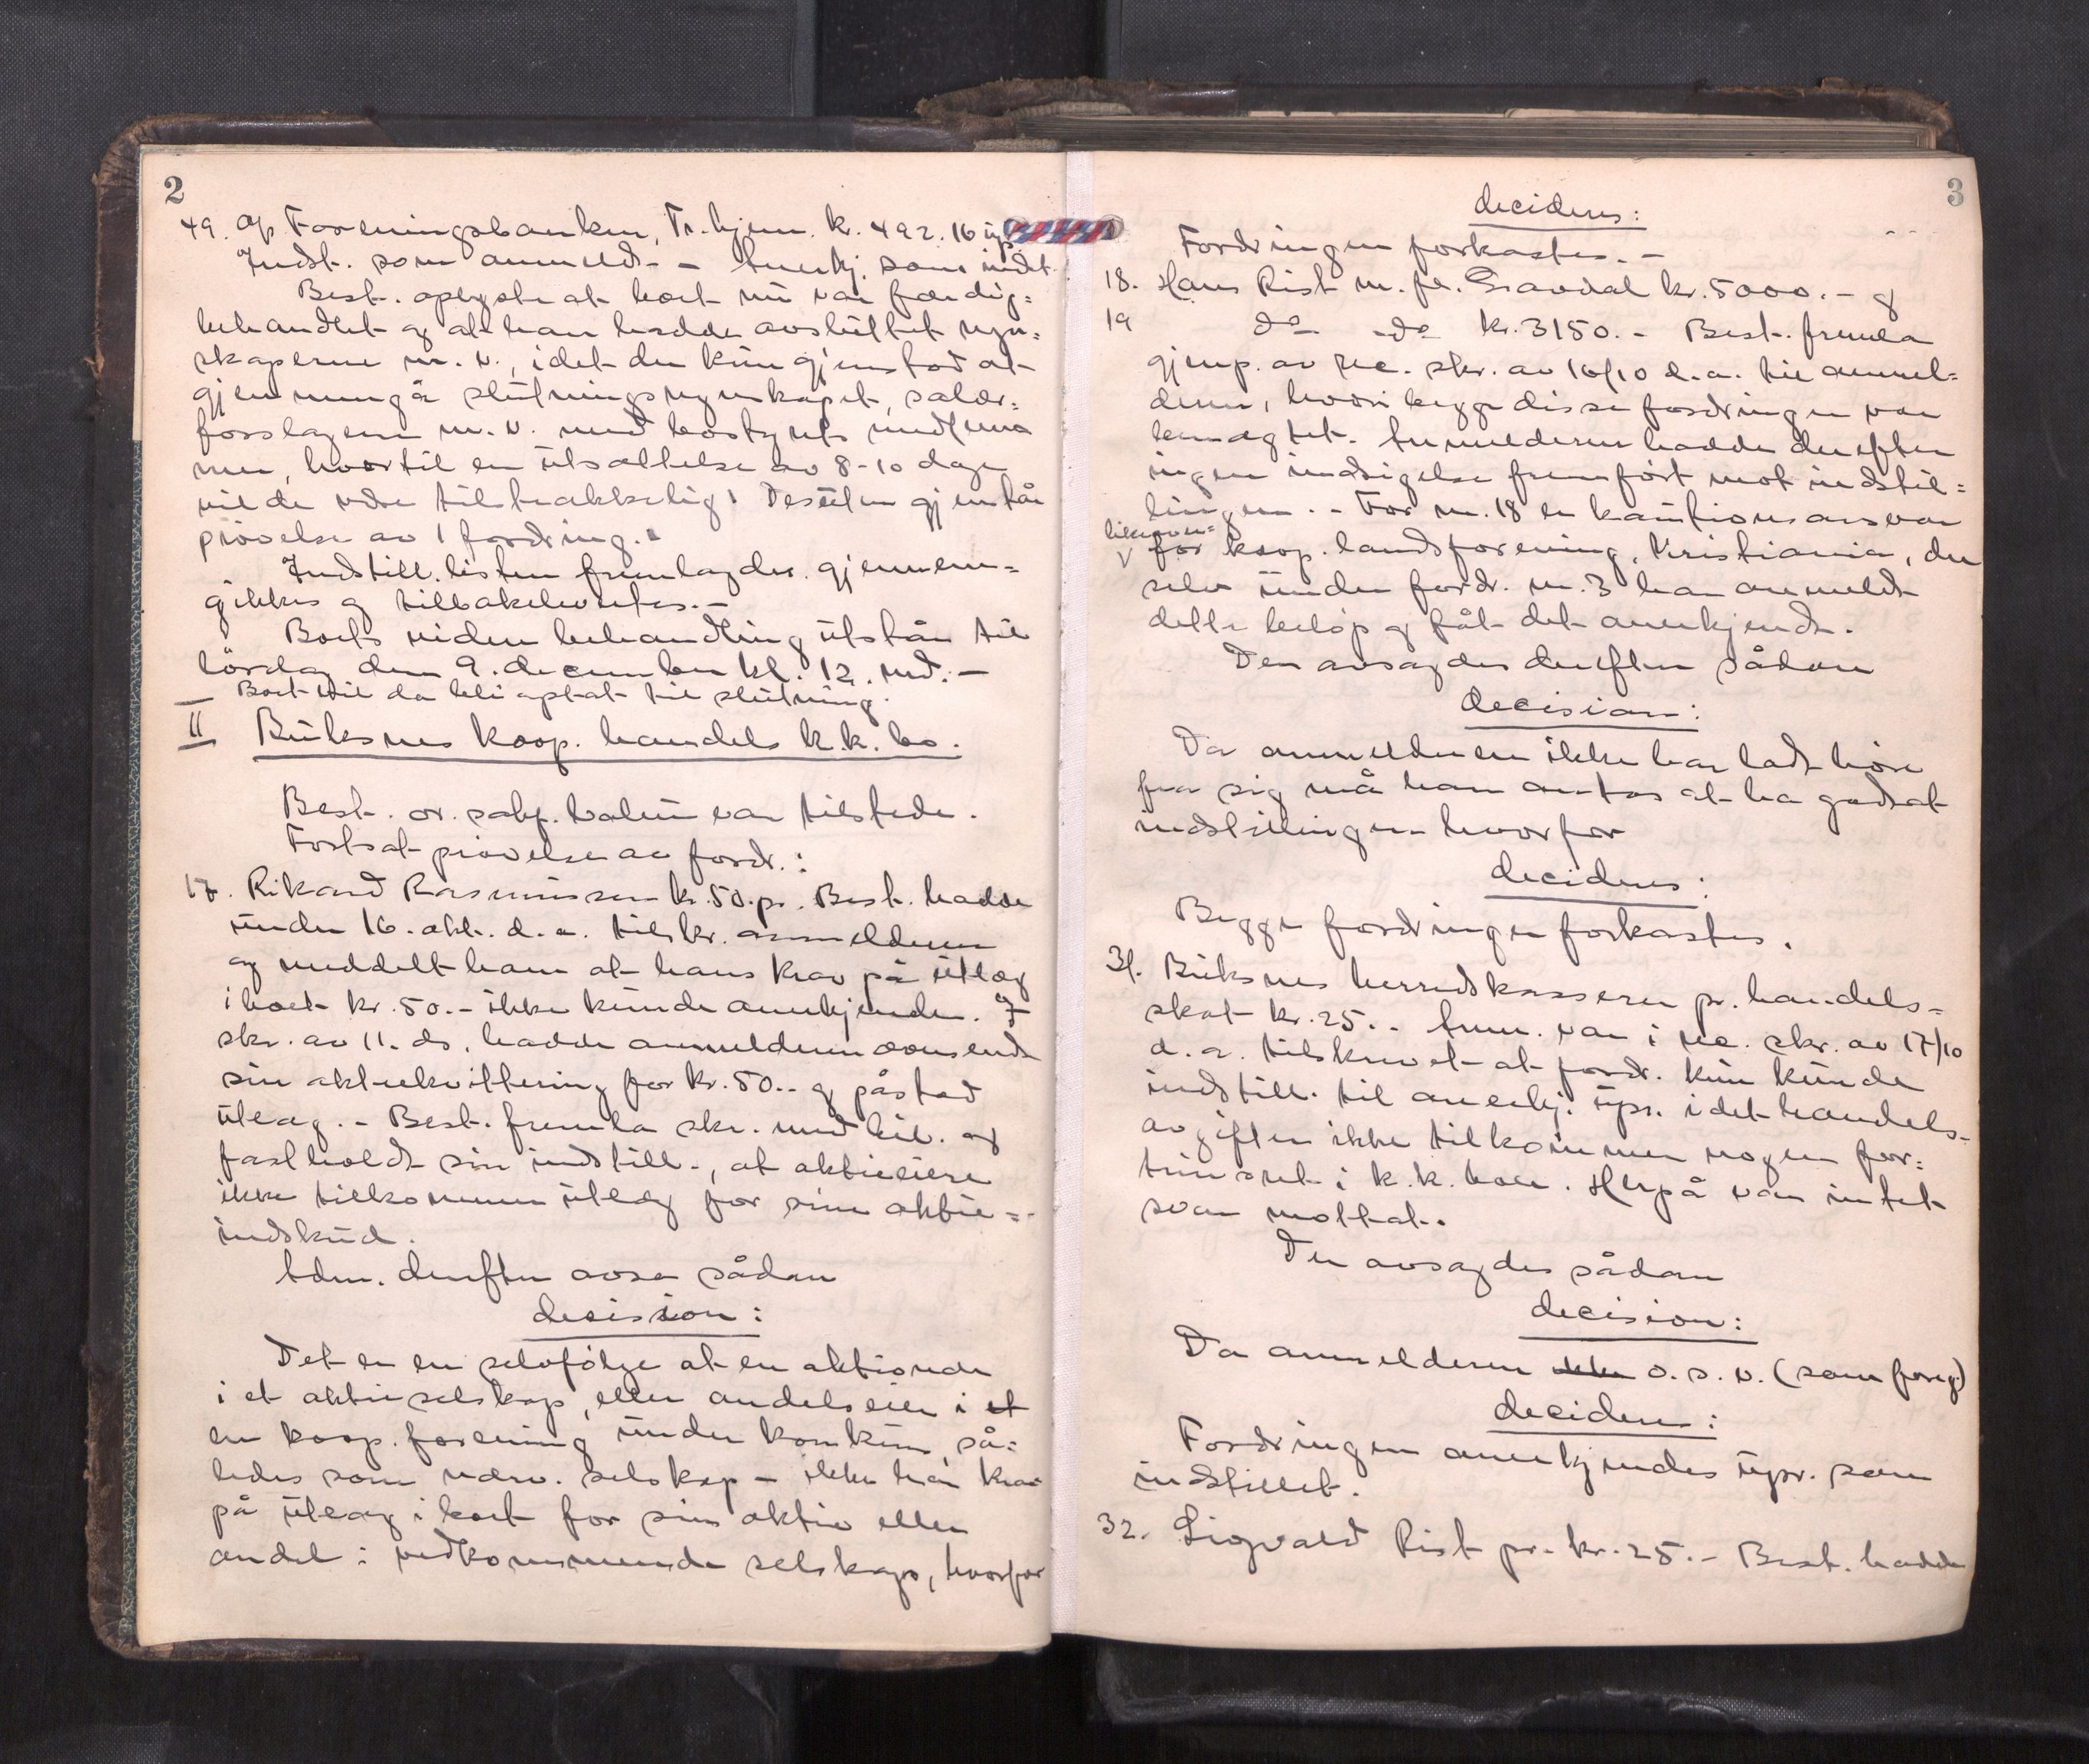 2
49. Ap Foreningsbanken, Tr.hjem. kr. 492.16 up.
Indst. som anmeldt. - Anerkj. som indst.
Best. oplyste at boet nu var færdig=
behandlet og at han hadde avsluttet regn=
skaperne m. v., idet der kun gjenstod at
gjennemgå slutningsregnskapet, salær=
forslagene m. v. med bostyrets medlem=
mer, hvortil en utsættelse av 8-10 dage
vilde være tilstrækkelig. Desuten gjenstår
prövelse av 1 fordring.
Indstill. listen fremlagdes. gjennem=
gikkes og tilbakelevertes.-
Boets videre behandling utstår til
lördag den 9. december kl. 12. md.-
Boet vil da bli optat til slutning.
II Buksnes koop. handels k.k. bo.
Best. or. sakf. Holm var tilstede.
Fortsat prövelse av fordr.:
17. Rikard Rasmussen kr. 50. pr. Best. hadde
under 16. okt. d. a. tilskr. anmelderen
og meddelt ham at hans krav på utlæg
i boet kr. 50.- ikke kunde anerkjendes. I
skr. av 11. ds. hadde anmelderen oversendt
sin aktiekvittering for kr. 50.- og påstod
utlæg.- Best. fremla skr. med bil. og
fastholdt sin indstill., at aktieeiere
ikke tilkommer utlæg for sine aktie=
indskud.
Adm. derefter avsa sådan
decision:
Det er en selvfölge at en aktionær
i et aktieselskap, eller andelseier i et
en koop. forening under konkurs så=
ledes som nærv. selskap - ikke har krav
på utlæg i boet for sin aktie eller
andel i vedkommende selskap, hvorfor
3
decideres:
Fordringen forkastes.-
18. Hans Rist m. fl. Gravdal kr. 5000.- og
19 do do kr. 3150.- Best. fremla
gjenp. av rec. skr. av 16/10 d. a. til anmel=
deren, hvori begge disse fordringer var
benægtet. Anmelderen hadde derefter
ingen indsigelse fremfört mot indstil=
lingen.- For nr. 18 er kautionsansvar
likeoverfor
for koop. landsforening, Kristiania, der
selv under fordr. nr. 3 har anmeldt
dette belöp og fåt det anerkjendt.
Der avsagdes derefter sådan
decision:
Da anmelderen ikke har ladt höre
fra sig må han antas at ha godtat
indstillingen hvorfor
decideres:
Begge fordringer forkastes.
31. Buksnes herredskasserer pr. handels=
skat kr. 25.- Anm. var i rec. skr. av 17/10
d. a. tilskrevet at fordr. kun kunde
indstill. til anerkj. upr. idet handels=
avgiften ikke tilkommer nogen for=
trinsret i k.k. boer. Herpå var intet
svar mottat.
Der avsagdes sådan
decision:
Da anmelderen ikke o. s. v. (som foreg.)
decideres:
Fordringen anerkjendes upr. som
indstillet.
32. Sigvald Rist pr. kr. 25.- Best. hadde